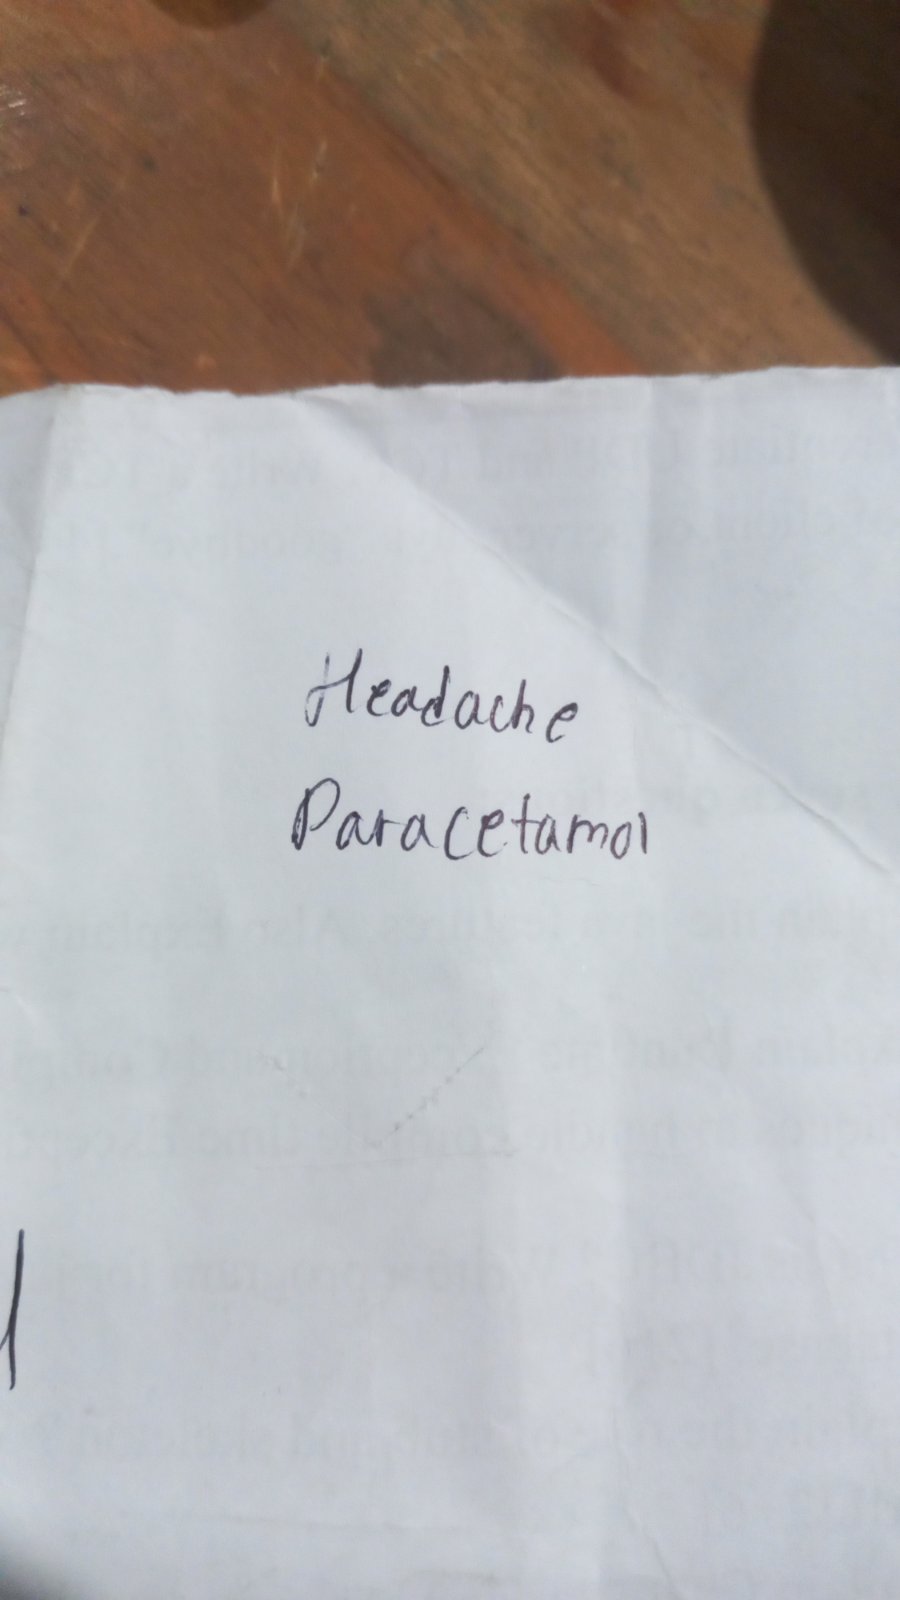 Headache
Paracetamol